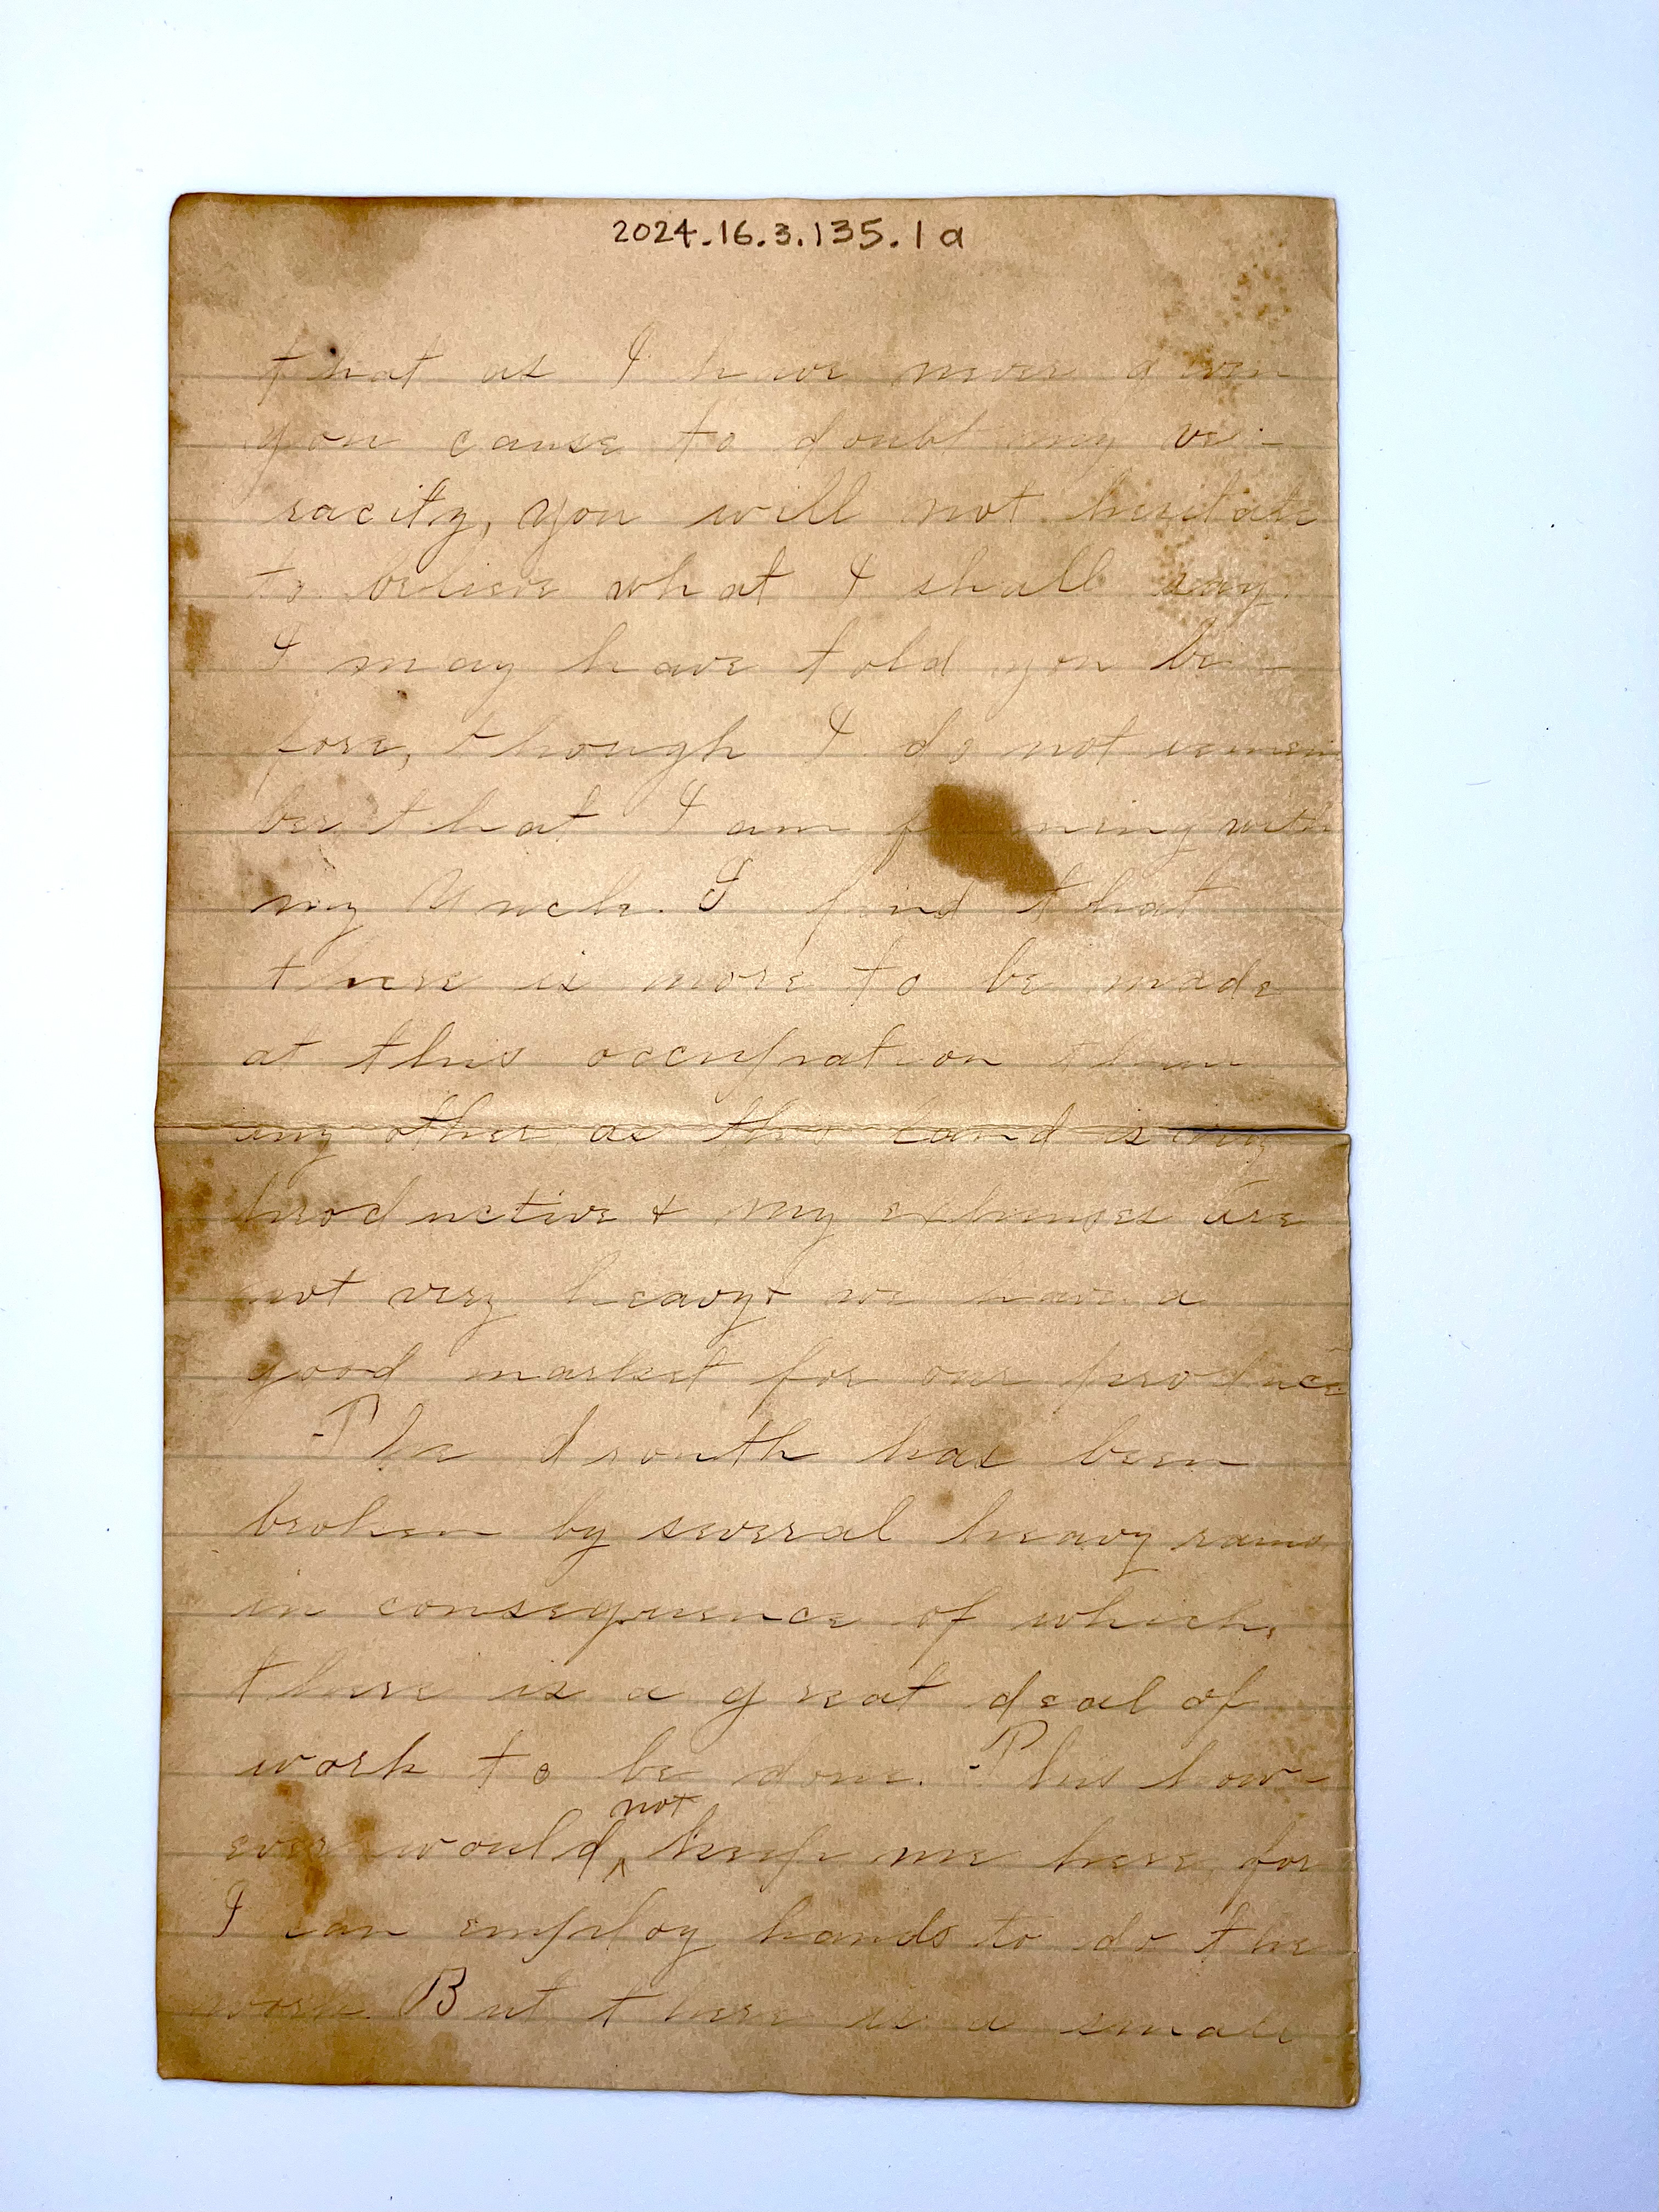 2024.16.3.135.1a
that as I have never given
you cause to doubt my ve-
racity, you will not hesitate
to believe what I shall say.
I may have told you be-
fore, though I do not remem
ber that I am farming with
my Uncle. I find that
there is more to be made
at this occupation than
any other as this land is very
productive & my expenses are
not very heavy & we have a
good market for our produce
The drouth has been
broken by several heavy rains
in consequence of which,
there is a great deal of
work to be done. This how-
not
ever would ‸ keep me here for
I can employ hands to do the
work. But there is a small